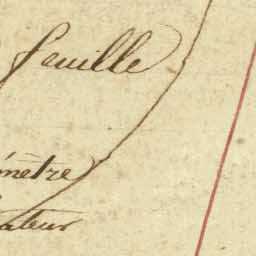 feuille
mètre
ateur